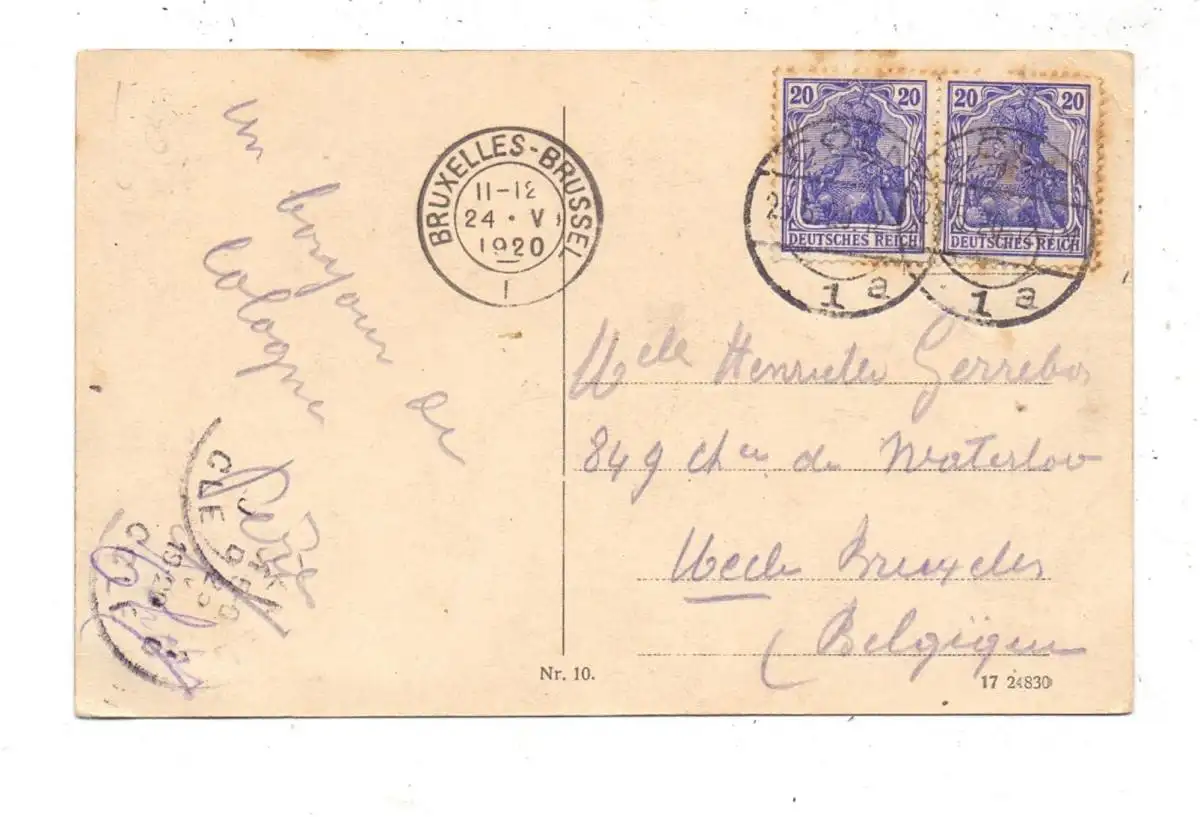 un
bonjour de
Cologne
BRUXELLES-BRUSSEL
11-12
24 · V
1920
1
20 20
DEUTSCHES REICH
20 20
DEUTSCHES REICH
1 a
1 a
Melle Henriette Gerrebos
849 chee de Waterloo
Uccle Bruxelles
(Belgique
CLE
CLE
Nr. 10.
17 24830